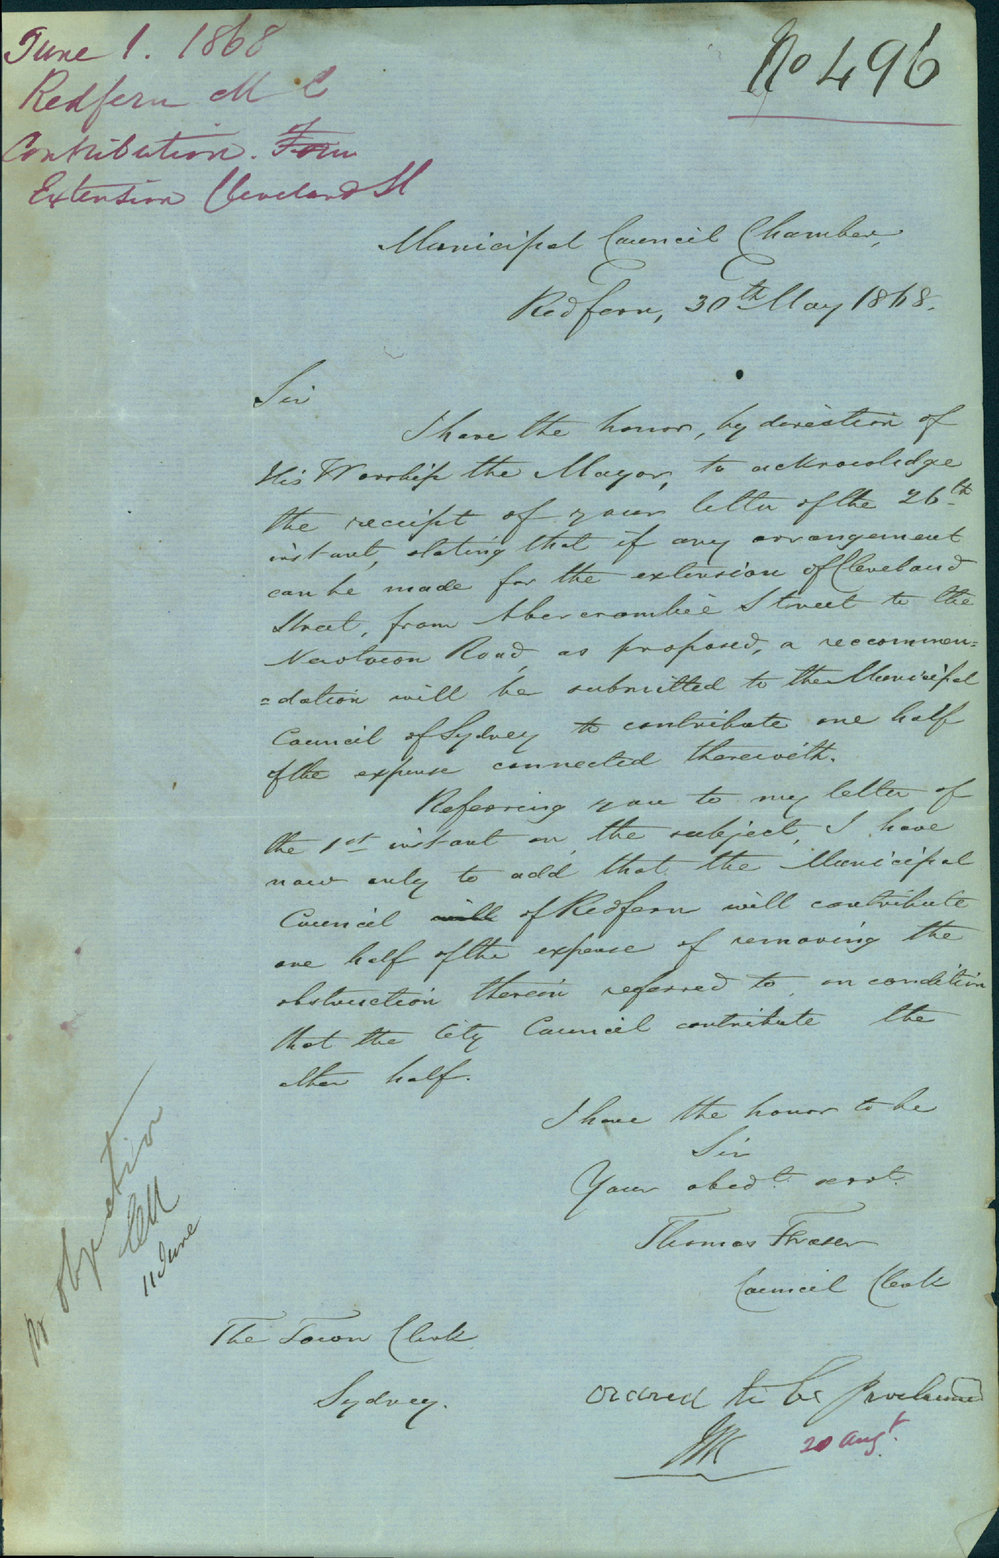 June 1. 1868
Redfern M C
Contribution. From
Extension Cleveland St
No 496
Municipal Council Chamber,
Redfern, 30th May 1868.
Sir
I have the honor, by direction of
His Worship the Mayor, to acknowledge
the receipt of your letter of the 26th
instant, stating that if any arrangement
can be made for the extension of Cleveland
Street, from Abercrombie Street to the
Newtown Road, as proposed, a reccommen=
=dation will be submitted to the Municipal
Council of Sydney to contribute one half
of the expense connected therewith.
Referring you to my letter of
the 1st instant on the subject, I have
now only to add that the Municipal
Council will of Redfern will contribute
one half of the expense of removing the
obstruction therein referred to, on condition
that the City Council contribute the
other half.
I have the honor to be
Sir
Your obedt. servt.
Thomas Fraser
Council Clerk
no objection
11 June
The Town Clerk
Sydney.
Ordered to be proclaimed
20 Augt.